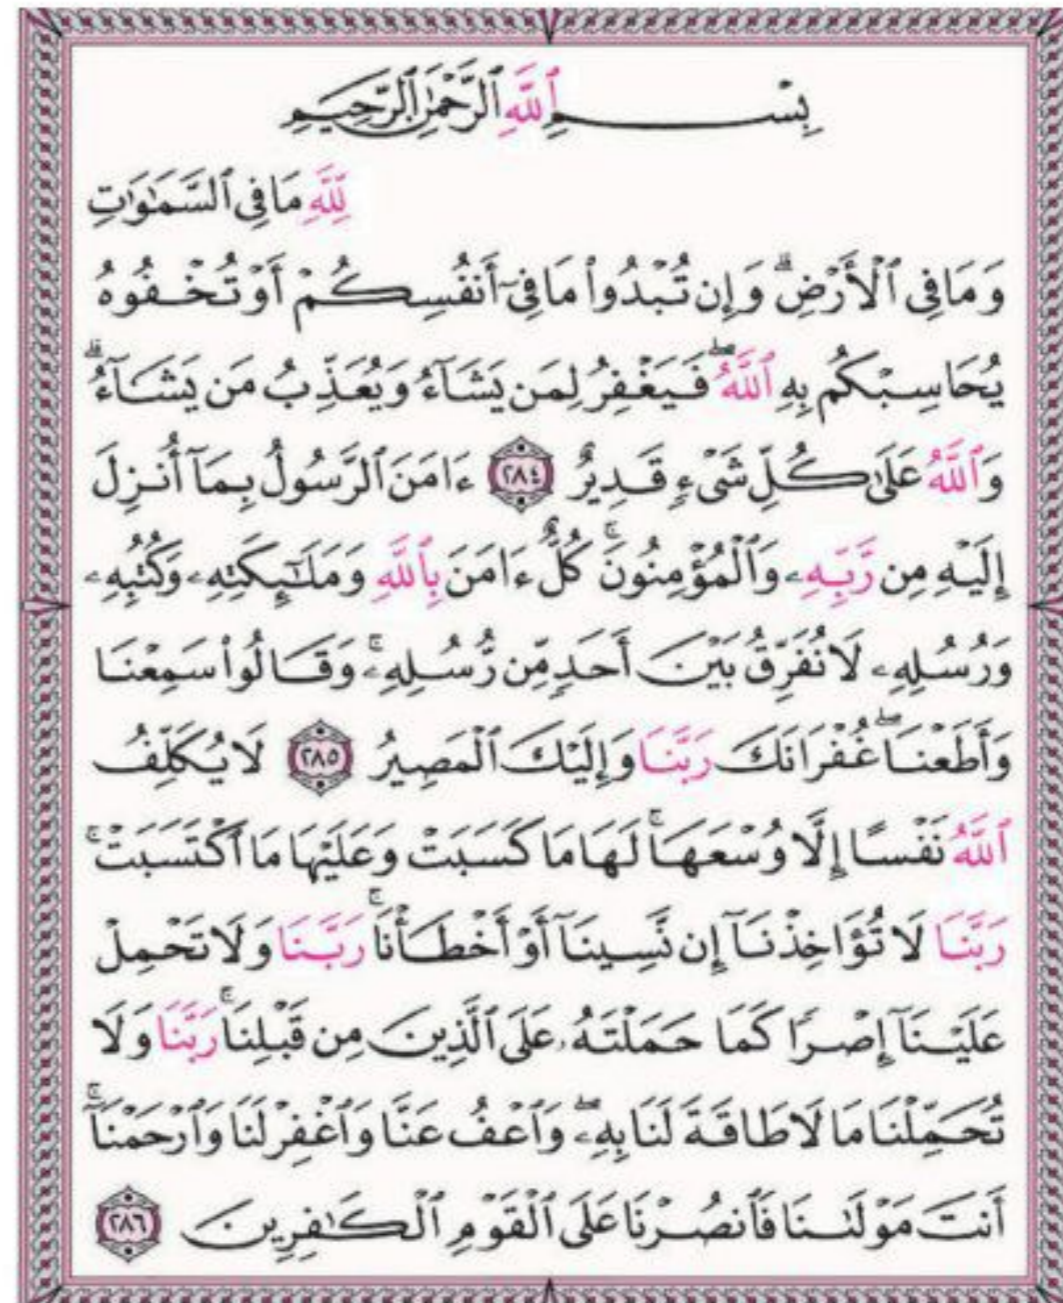 بِسْمِ ٱللَّهِ ٱلرَّحْمَٰنِ ٱلرَّحِيمِ
لِّلَّهِ مَا فِى ٱلسَّمَٰوَٰتِ
وَمَا فِى ٱلْأَرْضِ ۗ وَإِن تُبْدُوا۟ مَا فِىٓ أَنفُسِكُمْ أَوْ تُخْفُوهُ
يُحَاسِبْكُم بِهِ ٱللَّهُ ۖ فَيَغْفِرُ لِمَن يَشَآءُ وَيُعَذِّبُ مَن يَشَآءُ ۗ
وَٱللَّهُ عَلَىٰ كُلِّ شَىْءٍ قَدِيرٌ ٢٨٤ ءَامَنَ ٱلرَّسُولُ بِمَآ أُنزِلَ
إِلَيْهِ مِن رَّبِّهِۦ وَٱلْمُؤْمِنُونَ ۚ كُلٌّ ءَامَنَ بِٱللَّهِ وَمَلَٰٓئِكَتِهِۦ وَكُتُبِهِۦ
وَرُسُلِهِۦ لَا نُفَرِّقُ بَيْنَ أَحَدٍ مِّن رُّسُلِهِۦ ۚ وَقَالُوا۟ سَمِعْنَا
وَأَطَعْنَا ۖ غُفْرَانَكَ رَبَّنَا وَإِلَيْكَ ٱلْمَصِيرُ ٢٨٥ لَا يُكَلِّفُ
ٱللَّهُ نَفْسًا إِلَّا وُسْعَهَا ۚ لَهَا مَا كَسَبَتْ وَعَلَيْهَا مَا ٱكْتَسَبَتْ ۚ
رَبَّنَا لَا تُؤَاخِذْنَآ إِن نَّسِينَآ أَوْ أَخْطَأْنَا ۚ رَبَّنَا وَلَا تَحْمِلْ
عَلَيْنَآ إِصْرًا كَمَا حَمَلْتَهُۥ عَلَى ٱلَّذِينَ مِن قَبْلِنَا ۚ رَبَّنَا وَلَا
تُحَمِّلْنَا مَا لَا طَاقَةَ لَنَا بِهِۦ ۖ وَٱعْفُ عَنَّا وَٱغْفِرْ لَنَا وَٱرْحَمْنَآ ۚ
أَنتَ مَوْلَىٰنَا فَٱنصُرْنَا عَلَى ٱلْقَوْمِ ٱلْكَٰفِرِينَ ٢٨٦